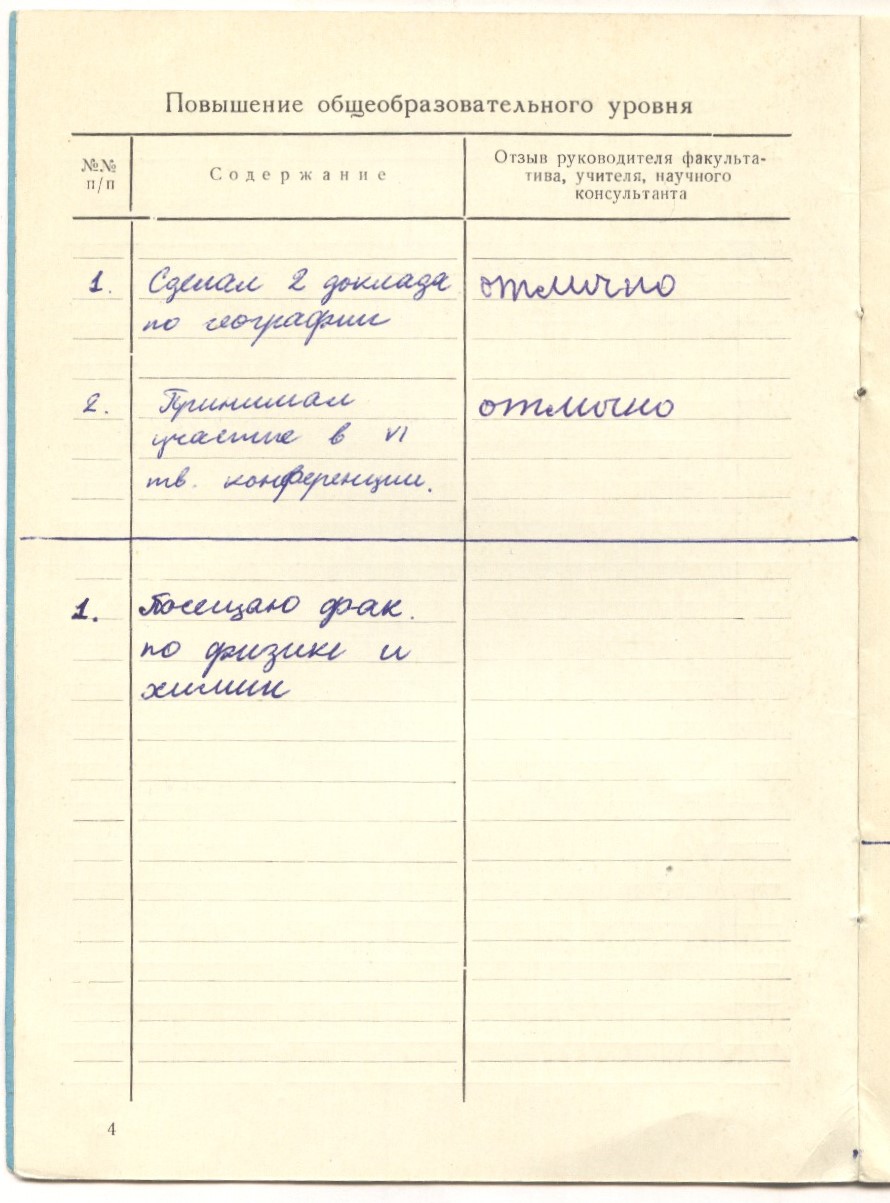 Повышение общеобразовательного уровня
№№ п/п
Содержание
Отзыв руководителя факульта-
тива, учителя, научного
консультанта
1. Сделал 2 доклада отлично
по географии
2. Принимал отлично
участие в VI
тв. конференции.
1. Посещаю фак.
по физике и
химии
4